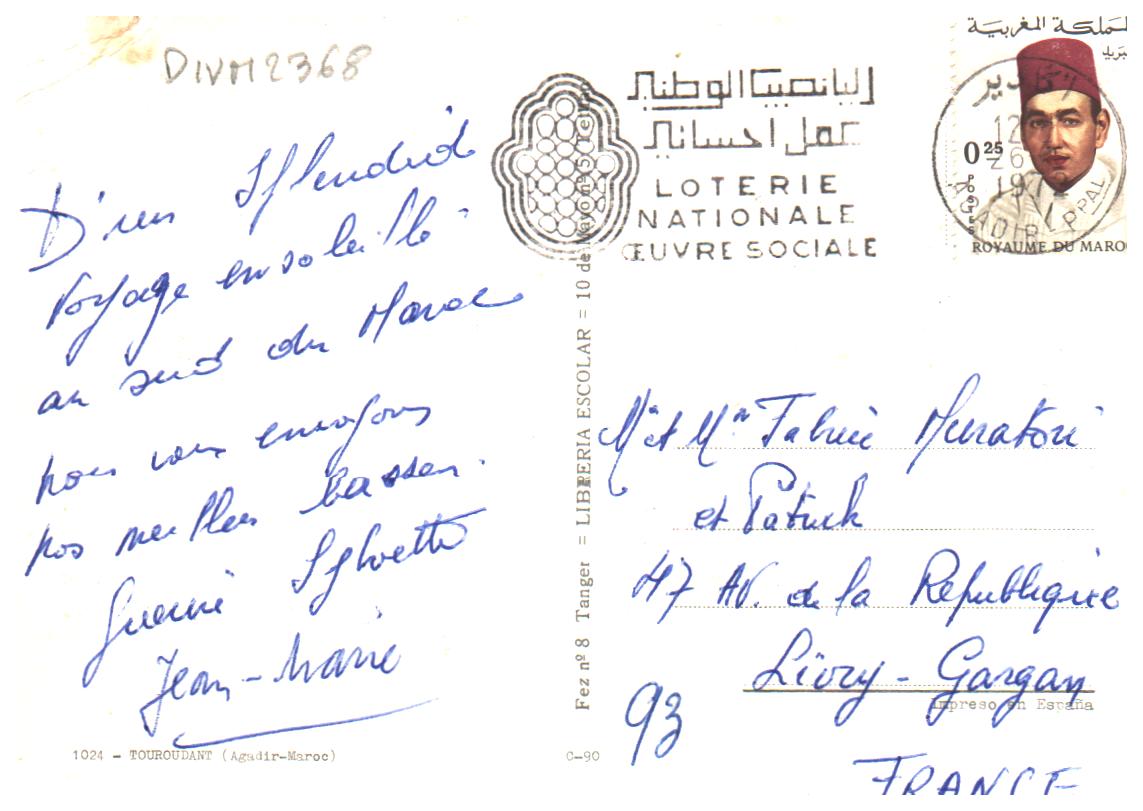 DIVM2368
D'un splendide
voyage ensoleillé
au sud du Maroc
nous vous envoyons
nos meilleurs baisers.
Sylvette
Jean-Marie
1024 - TOUROUDANT (Agadir-Maroc)
اليانصيب الوطني
عمل احساني
LOTERIE
NATIONALE
ŒUVRE SOCIALE
المملكة المغربية
0.25
POSTES
ROYAUME DU MARO
أكادير
12
26
197
AGADIR PPAL
Fez nº 8 Tanger = LIBRERIA ESCOLAR = 10 de Mayo nº 5
C-90
Mr et Mme Fabrice Muratori
et Patrick
47 Av. de la Republique
Livry-Gargan
93
Impreso en España
FRANCE